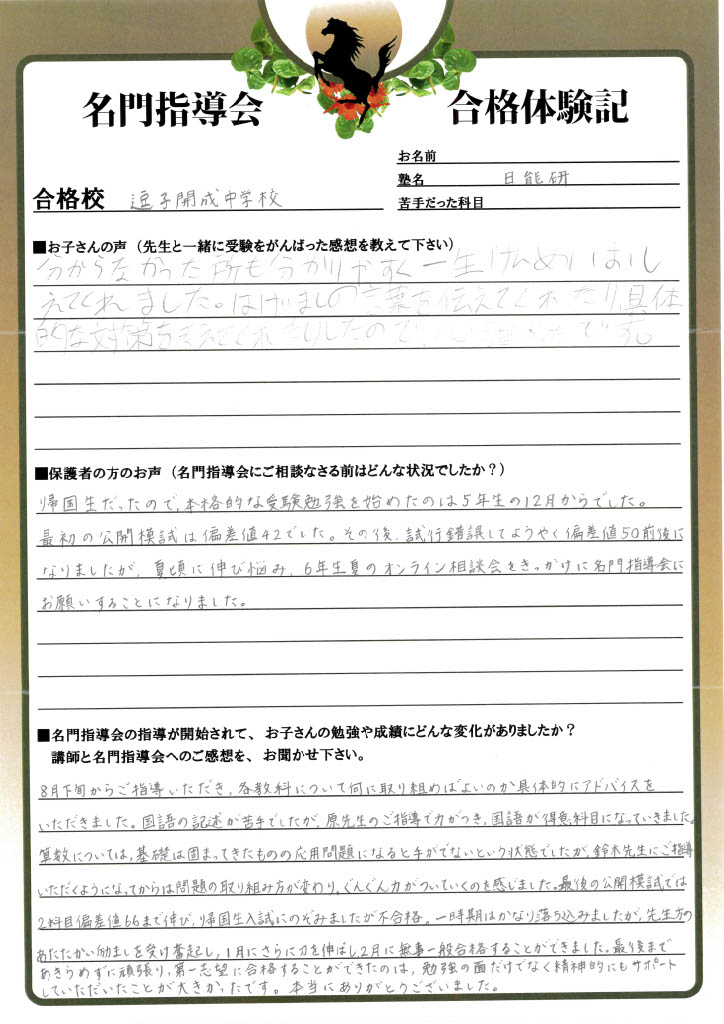 名門指導会 合格体験記
お名前
塾名 日能研
合格校 逗子開成中学校
苦手だった科目
■お子さんの声（先生と一緒に受験をがんばった感想を教えて下さい）
分からなかった所も分かりやすく一生けんめい
えてくれました。はげましの言葉を伝えてくれたり、具体
的な対策を考えてくれたりしたので、です。
■保護者の方のお声（名門指導会にご相談なさる前はどんな状況でしたか？）
帰国生だったので、本格的な受験勉強を始めたのは5年生の12月からでした。
最初の公開模試は偏差値42でした。その後、試行錯誤してようやく偏差値50前後に
なりましたが、夏頃に伸び悩み、6年生夏のオンライン相談会をきっかけに名門指導会に
お願いすることになりました。
■名門指導会の指導が開始されて、お子さんの勉強や成績にどんな変化がありましたか？
講師と名門指導会へのご感想を、お聞かせ下さい。
8月下旬からご指導いただき、各教科について何に取り組めばよいのか具体的にアドバイスを
いただきました。国語の記述が苦手でしたが、原先生のご指導で力がつき、国語が得意科目になっていきました。
算数については、基礎は固まってきたものの応用問題になると手がでないという状態でしたが、鈴木先生にご指導
いただくようになってからは問題の取り組み方が変わり、ぐんぐん力がついていくのを感じました。最後の公開模試では
2科目偏差値66まで伸び、帰国生入試にのぞみましたが不合格。一時期はかなり落ち込みましたが、先生方の
あたたかい励ましを受け奮起し、1月にさらに力を伸ばし、2月に無事一般合格することができました。最後まで
あきらめずに頑張り、第一志望に合格することができたのは、勉強の面だけでなく精神的にもサポート
していただいたことが大きかったです。本当にありがとうございました。